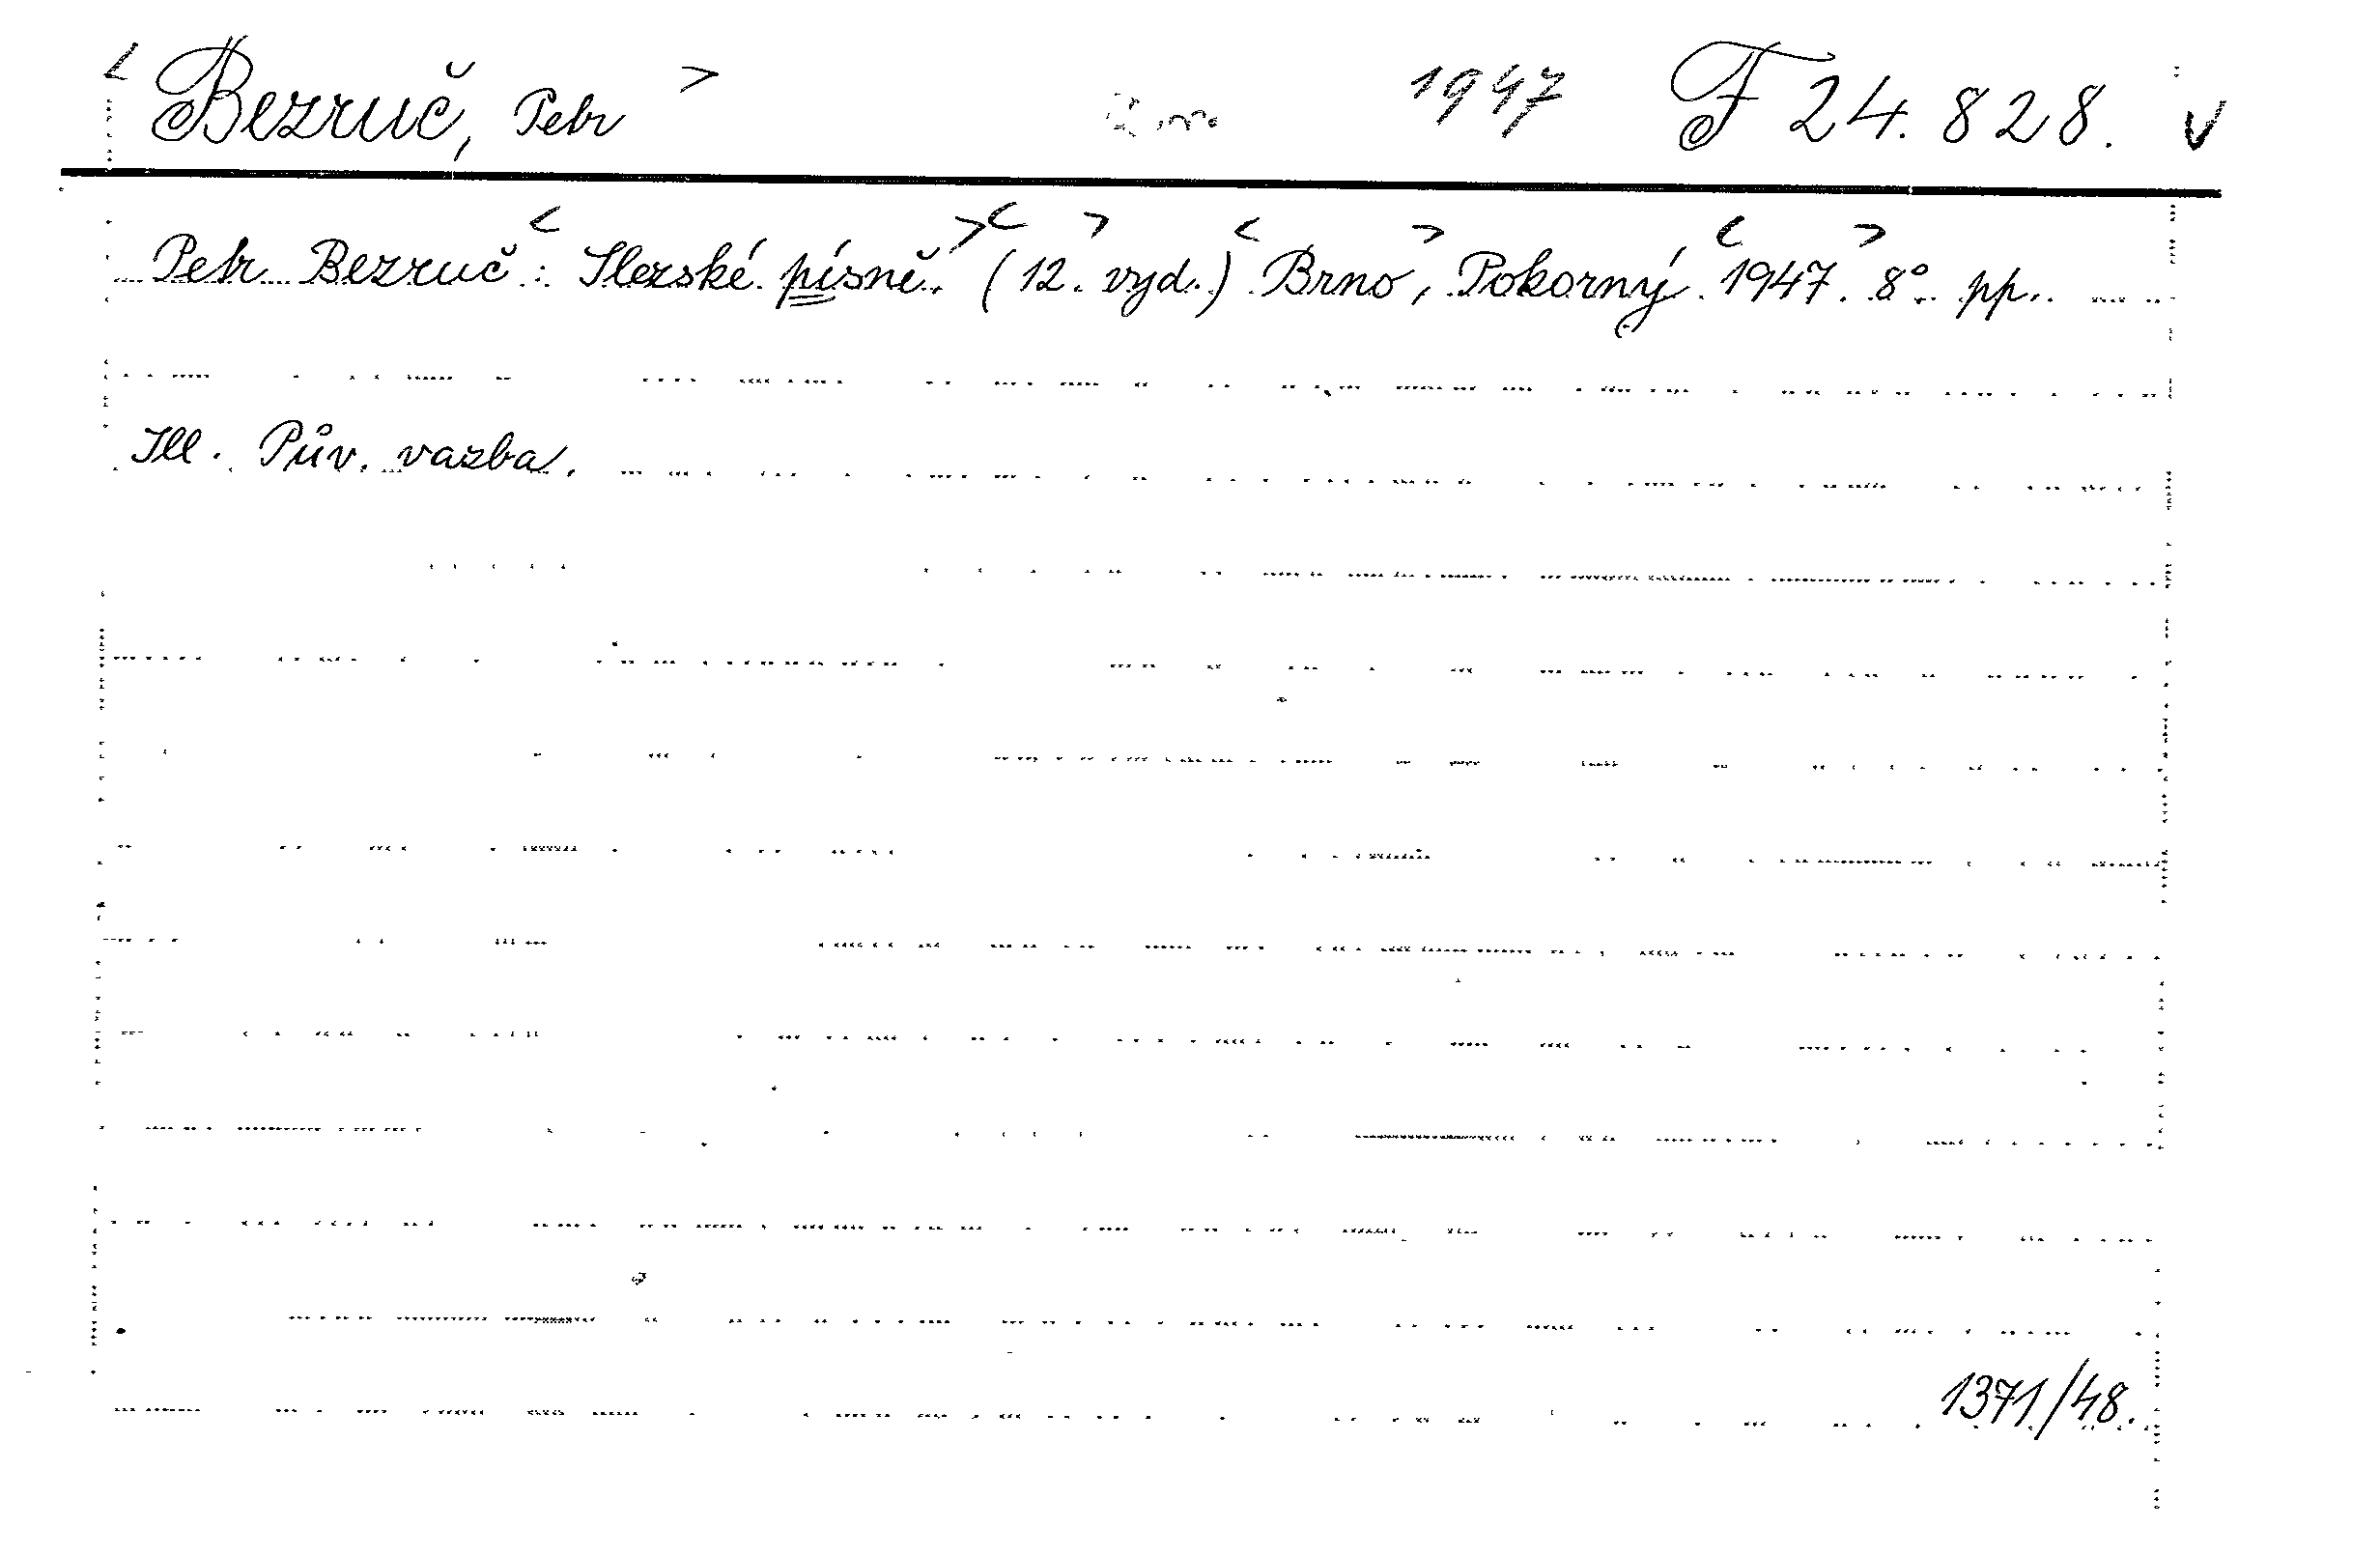 < Bezruč, Petr > 1947 F 24.828. v
Petr Bezruč: <Slezské písně.> <(12. vyd.)> <Brno>, Pokorný <1947>. 8° pp.
Ill. Pův. vazba.
1371/48.